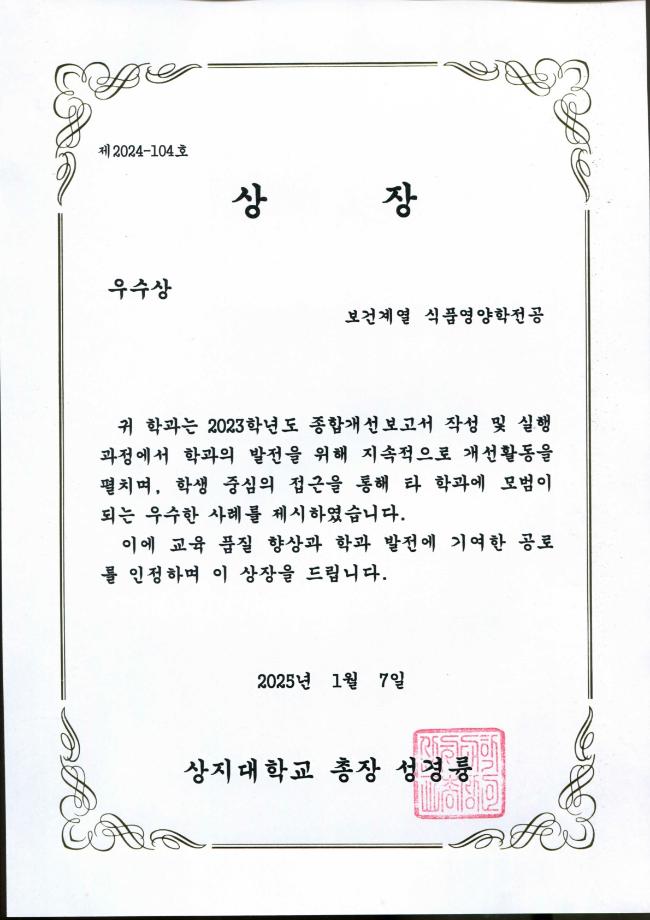 제2024-104호
상 장
우수상
보건계열 식품영양학전공
귀 학과는 2023학년도 종합개선보고서 작성 및 실행
과정에서 학과의 발전을 위해 지속적으로 개선활동을
펼치며, 학생 중심의 접근을 통해 타 학과에 모범이
되는 우수한 사례를 제시하였습니다.
이에 교육 품질 향상과 학과 발전에 기여한 공로
를 인정하며 이 상장을 드립니다.
2025년 1월 7일
상지대학교 총장 성경륭